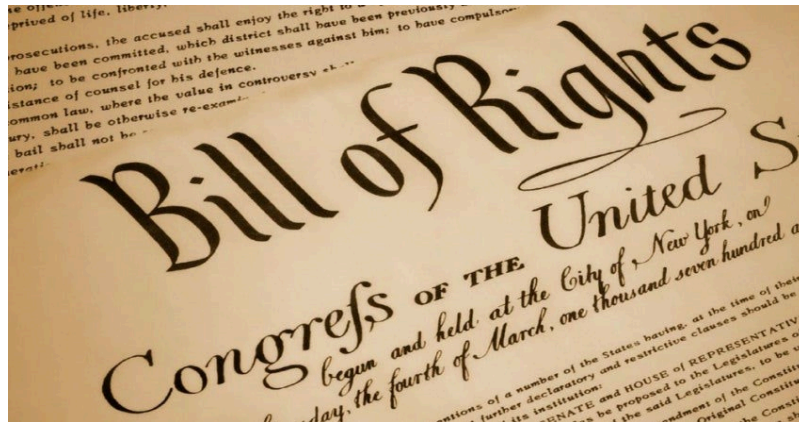 prived of life, liberty,
prosecutions, the accused shall enjoy the right to a
have been committed, which district shall have been previously
ion; to be confronted with the witnesses against him; to have compulsor
istance of counsel for his defence.
ommon law, where the value in controversy shall
ury, shall be otherwise re-exami
bail shall not be
Bill of Rights
Congreſs OF THE United S
begun and held at the City of New York, on
day, the fourth of March, one thousand seven hundred a
entions of a number of the States having, at the time of their
further declaratory and restrictive clauses should be
its institution:
ENATE and HOUSE of REPRESENTATIV
be proposed to the Legislatures o
the said Legislatures, to be v
endment of the Constit
Original Constitu